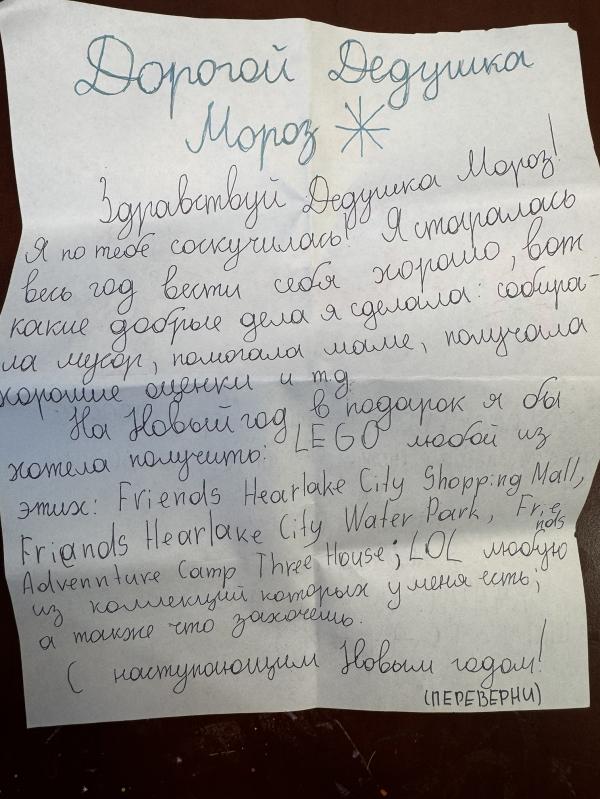 Дорогой Дедушка
Мороз
Здравствуй Дедушка Мороз!
Я по тебе соскучилась! Я старалась
весь год вести себя хорошо, вот
какие добрые дела я сделала: собира-
ла мусор, помогала маме, получала
хорошие оценки и т.д.
На Новый год в подарок я бы
хотела получить: LEGO любой из
этих: Friends Hearlake City Shopping Mall,
Friands Hearlake City Water Park, Friends
Advennture Camp Three House; LOL любую
из коллекций которых у меня есть;
а также что захочешь.
С наступающим Новым годом!
(ПЕРЕВЕРНИ)